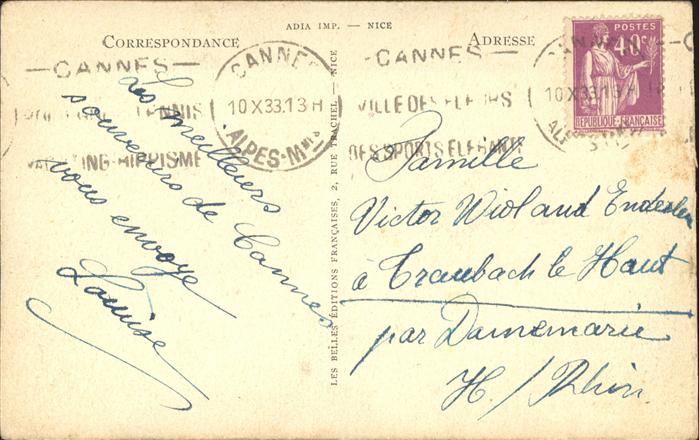 ADIA IMP. — NICE
CORRESPONDANCE
ADRESSE
POSTES
40c
RÉPUBLIQUE-FRANÇAISE
CANNES
CANNES
10 X 33.13 H
ALPES-Mmes
TENNIS
YACHTING-HIPPISME
CANNES
VILLE DES FLEURS
DES SPORTS ELEGANTS
10 X 33.13 H
Les meilleurs
souvenirs de Cannes
vous envoye
Louise
LES BELLES ÉDITIONS FRANÇAISES, 2, RUE TRACHEL — NICE
Famille
Victor Wioland Enderlen
à Traubach le Haut
par Dannemarie
H/Rhin